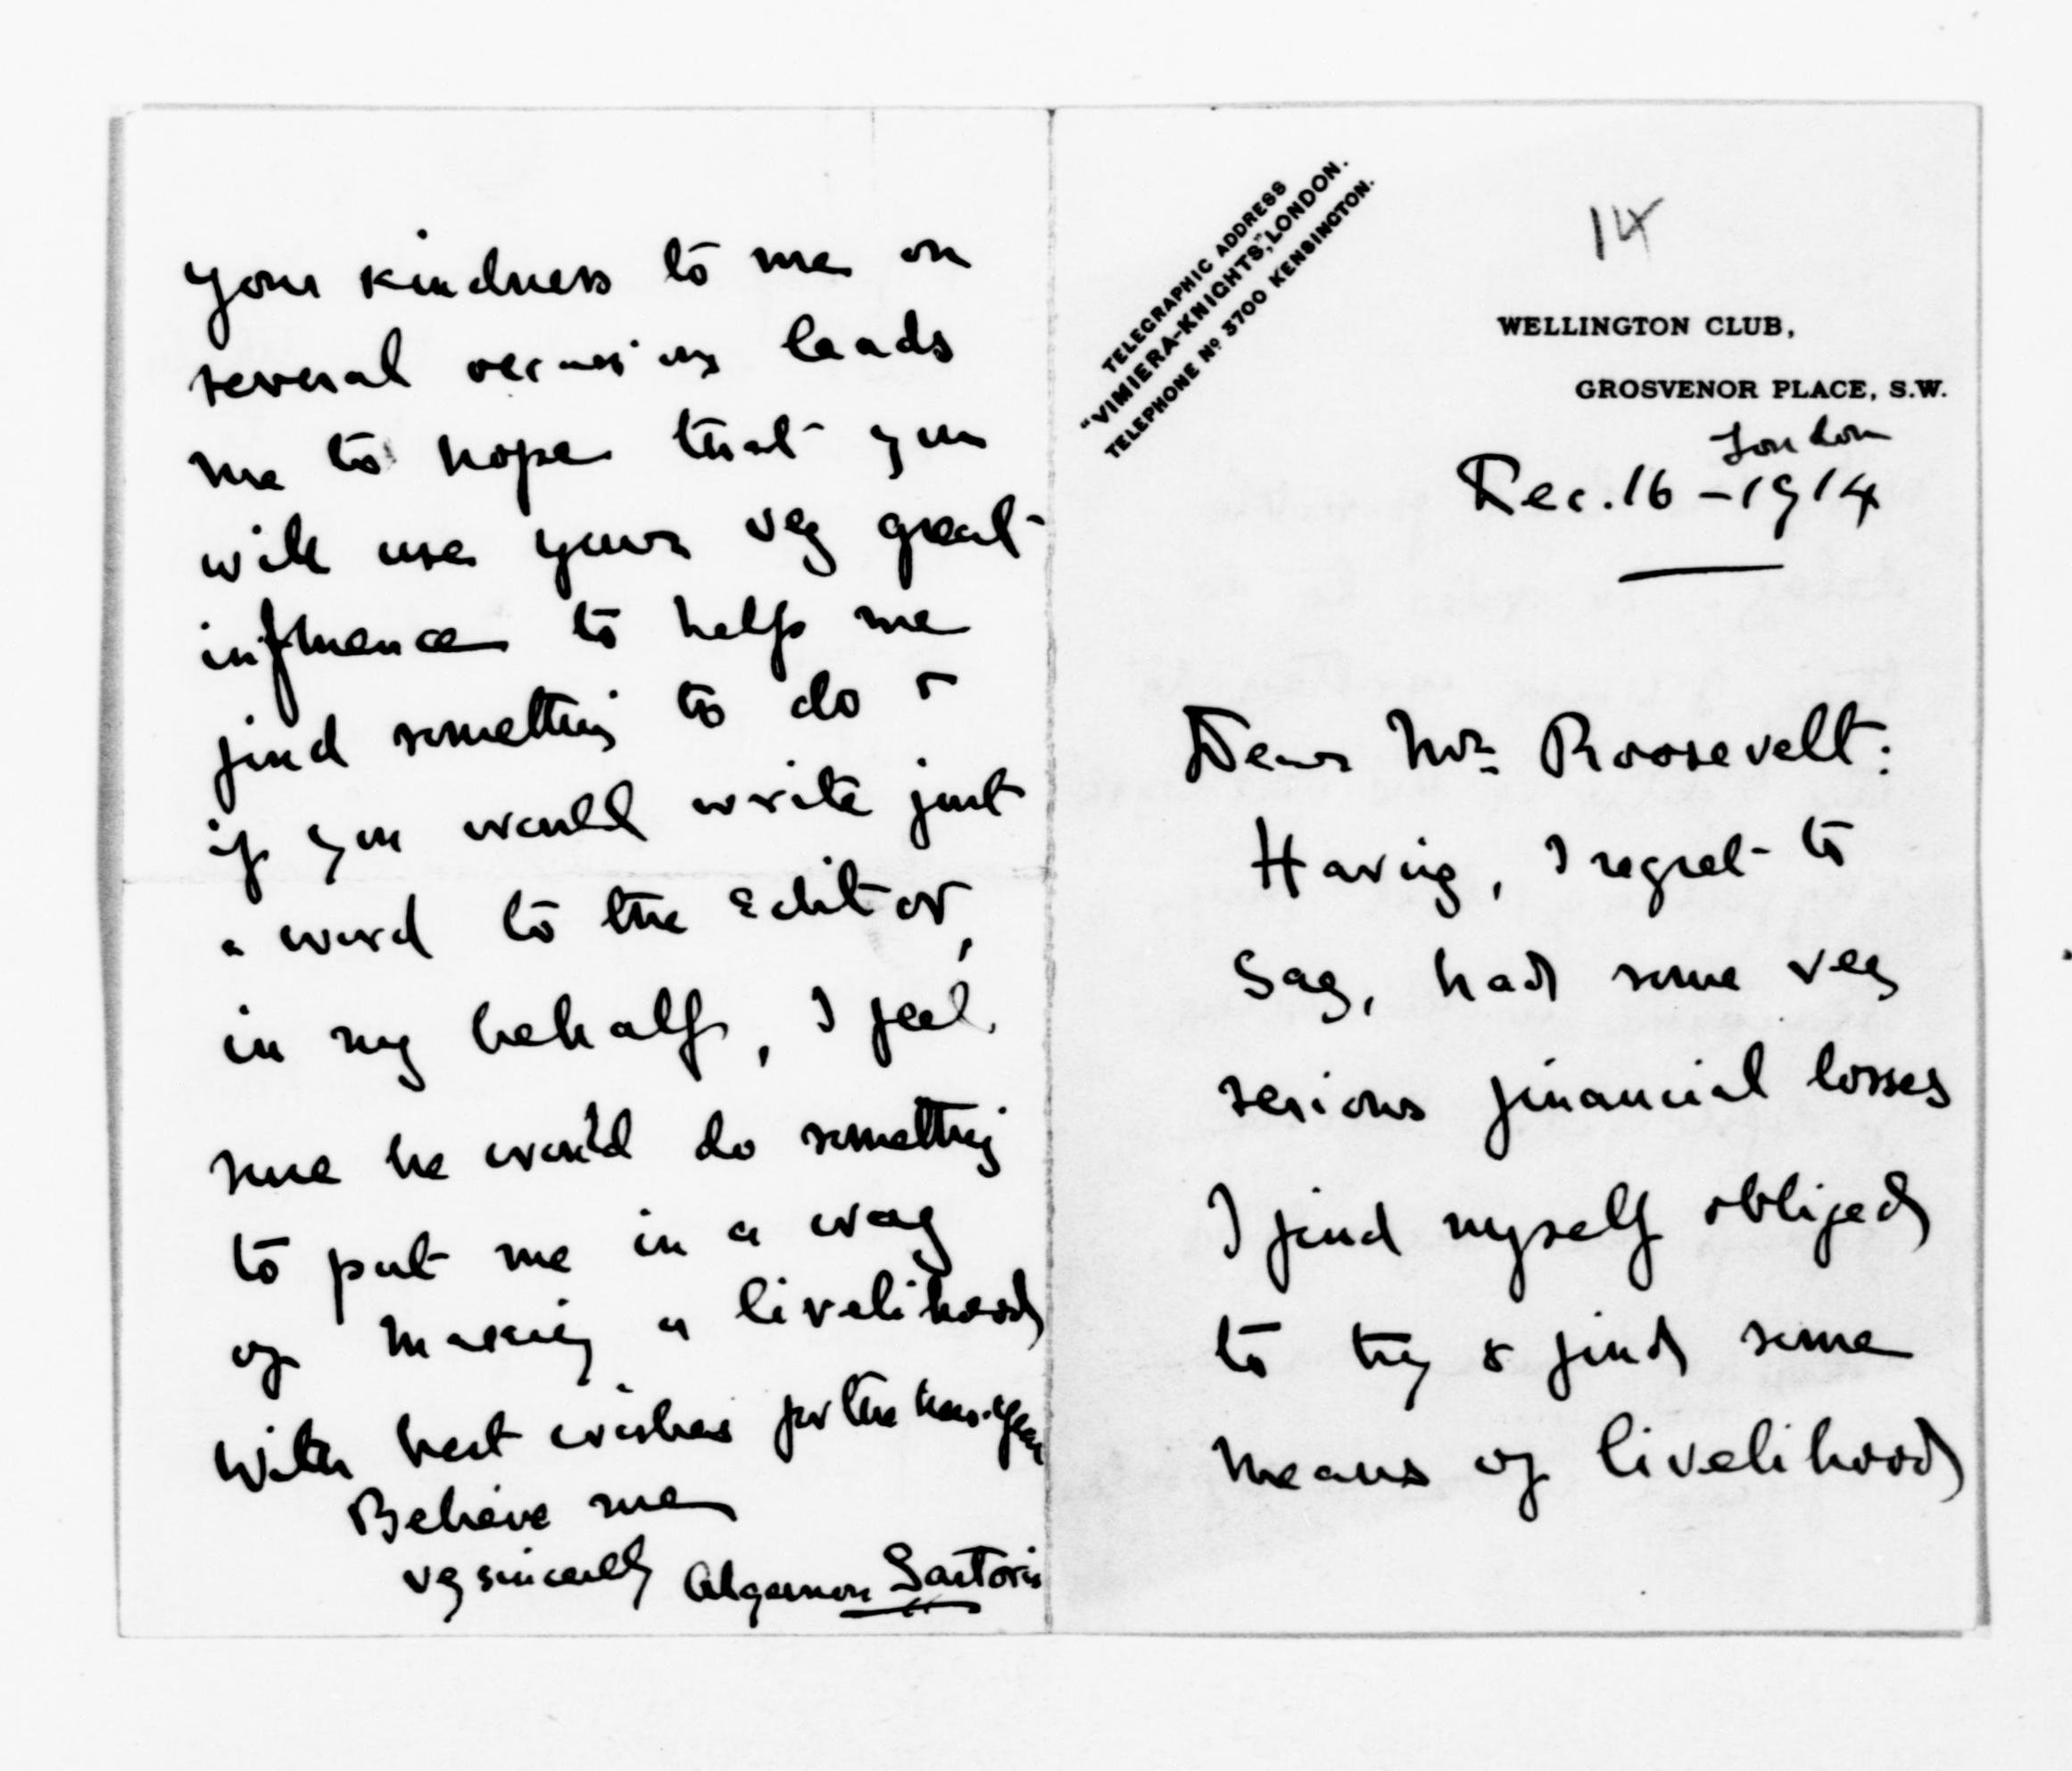 TELEGRAPHIC ADDRESS
"VIMIERA-KNIGHTS", LONDON.
TELEPHONE No 3700 KENSINGTON.
14
WELLINGTON CLUB,
GROSVENOR PLACE, S.W.
London
Dec. 16 - 1914
Dear Mr. Roosevelt:
Having, I regret to
say, had some very
serious financial losses
I find myself obliged
to try & find some
means of livelihood
your kindness to me on
several occasions leads
me to hope that you
will use your very great
influence to help me
find something to do &
if you would write just
a word to the Editor,
in my behalf, I feel
sure he would do something
to put me in a way
of making a livelihood
With best wishes for the new-year
Believe me
vy sincerely Algernon Sartoris